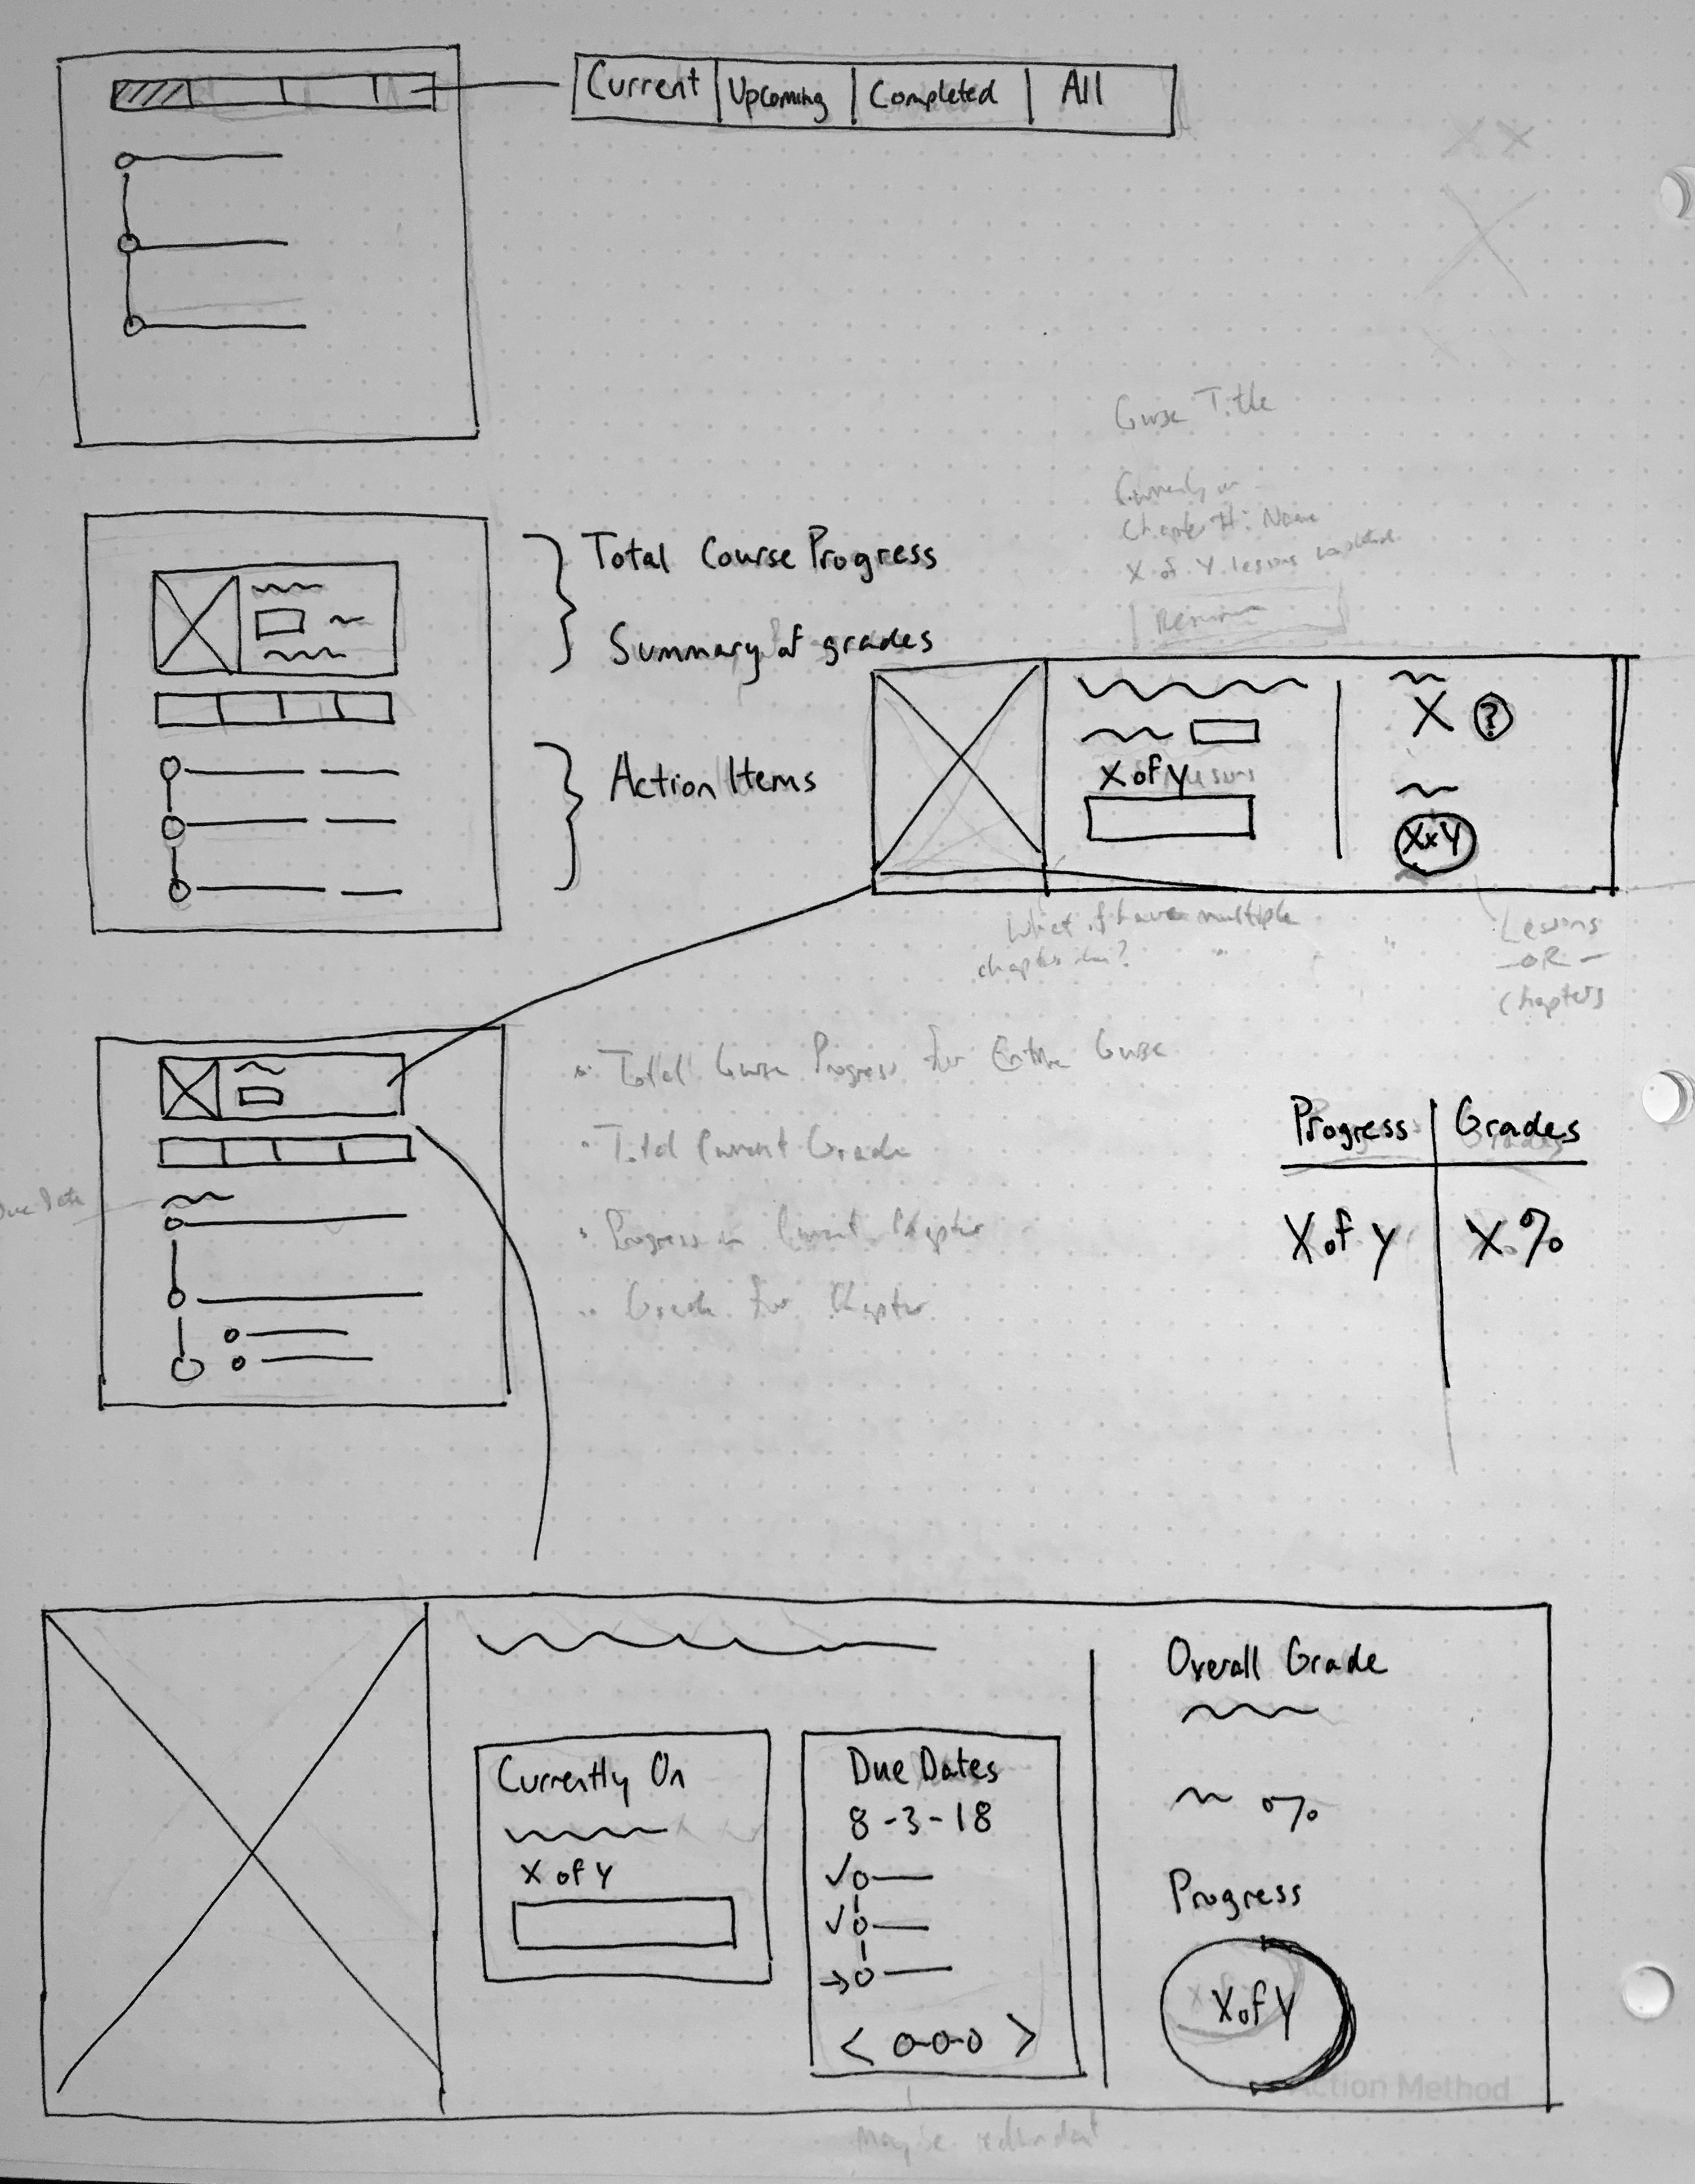 Current Upcoming Completed All
Course Title
Currently on
Chapter #: Name
X of Y lessons completed
Resume
Total Course Progress
Summary of grades
Action Items
X ?
X of Y lessons
XxY
What if have multiple
chapters due?
Lessons
- OR -
Chapters
Total Course Progress for Entire Course
Total Current Grade
Progress in Current Chapter
Grade for Chapter
Due Date
Progress Grades
X of Y X%
Overall Grade
Currently On
X of Y
Due Dates
8-3-18
%
Progress
X of Y
Action Method
Maybe redundant